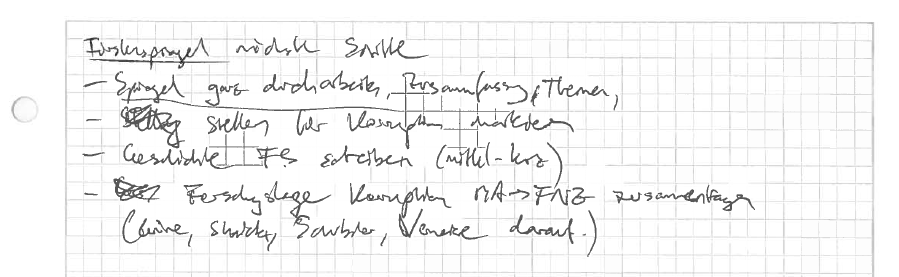 Fürstenspiegel nächste Schritte
– Spiegel ganz durcharbeiten, Zusammenfassung, Themen,
– Stellen für Korruption markieren
– Geschichte FS schreiben (mittel-kurz)
– Forschungslage Korruption MA→FNZ zusammentragen
( darauf.)